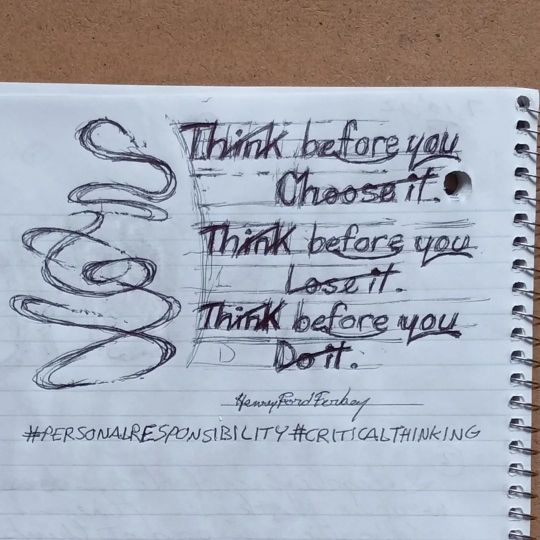 Think before you
Choose it.
Think before you
Lose it.
Think before you
Do it.
Henry Ford Forbey
#PERSONALRESPONSIBILITY #CRITICALTHINKING